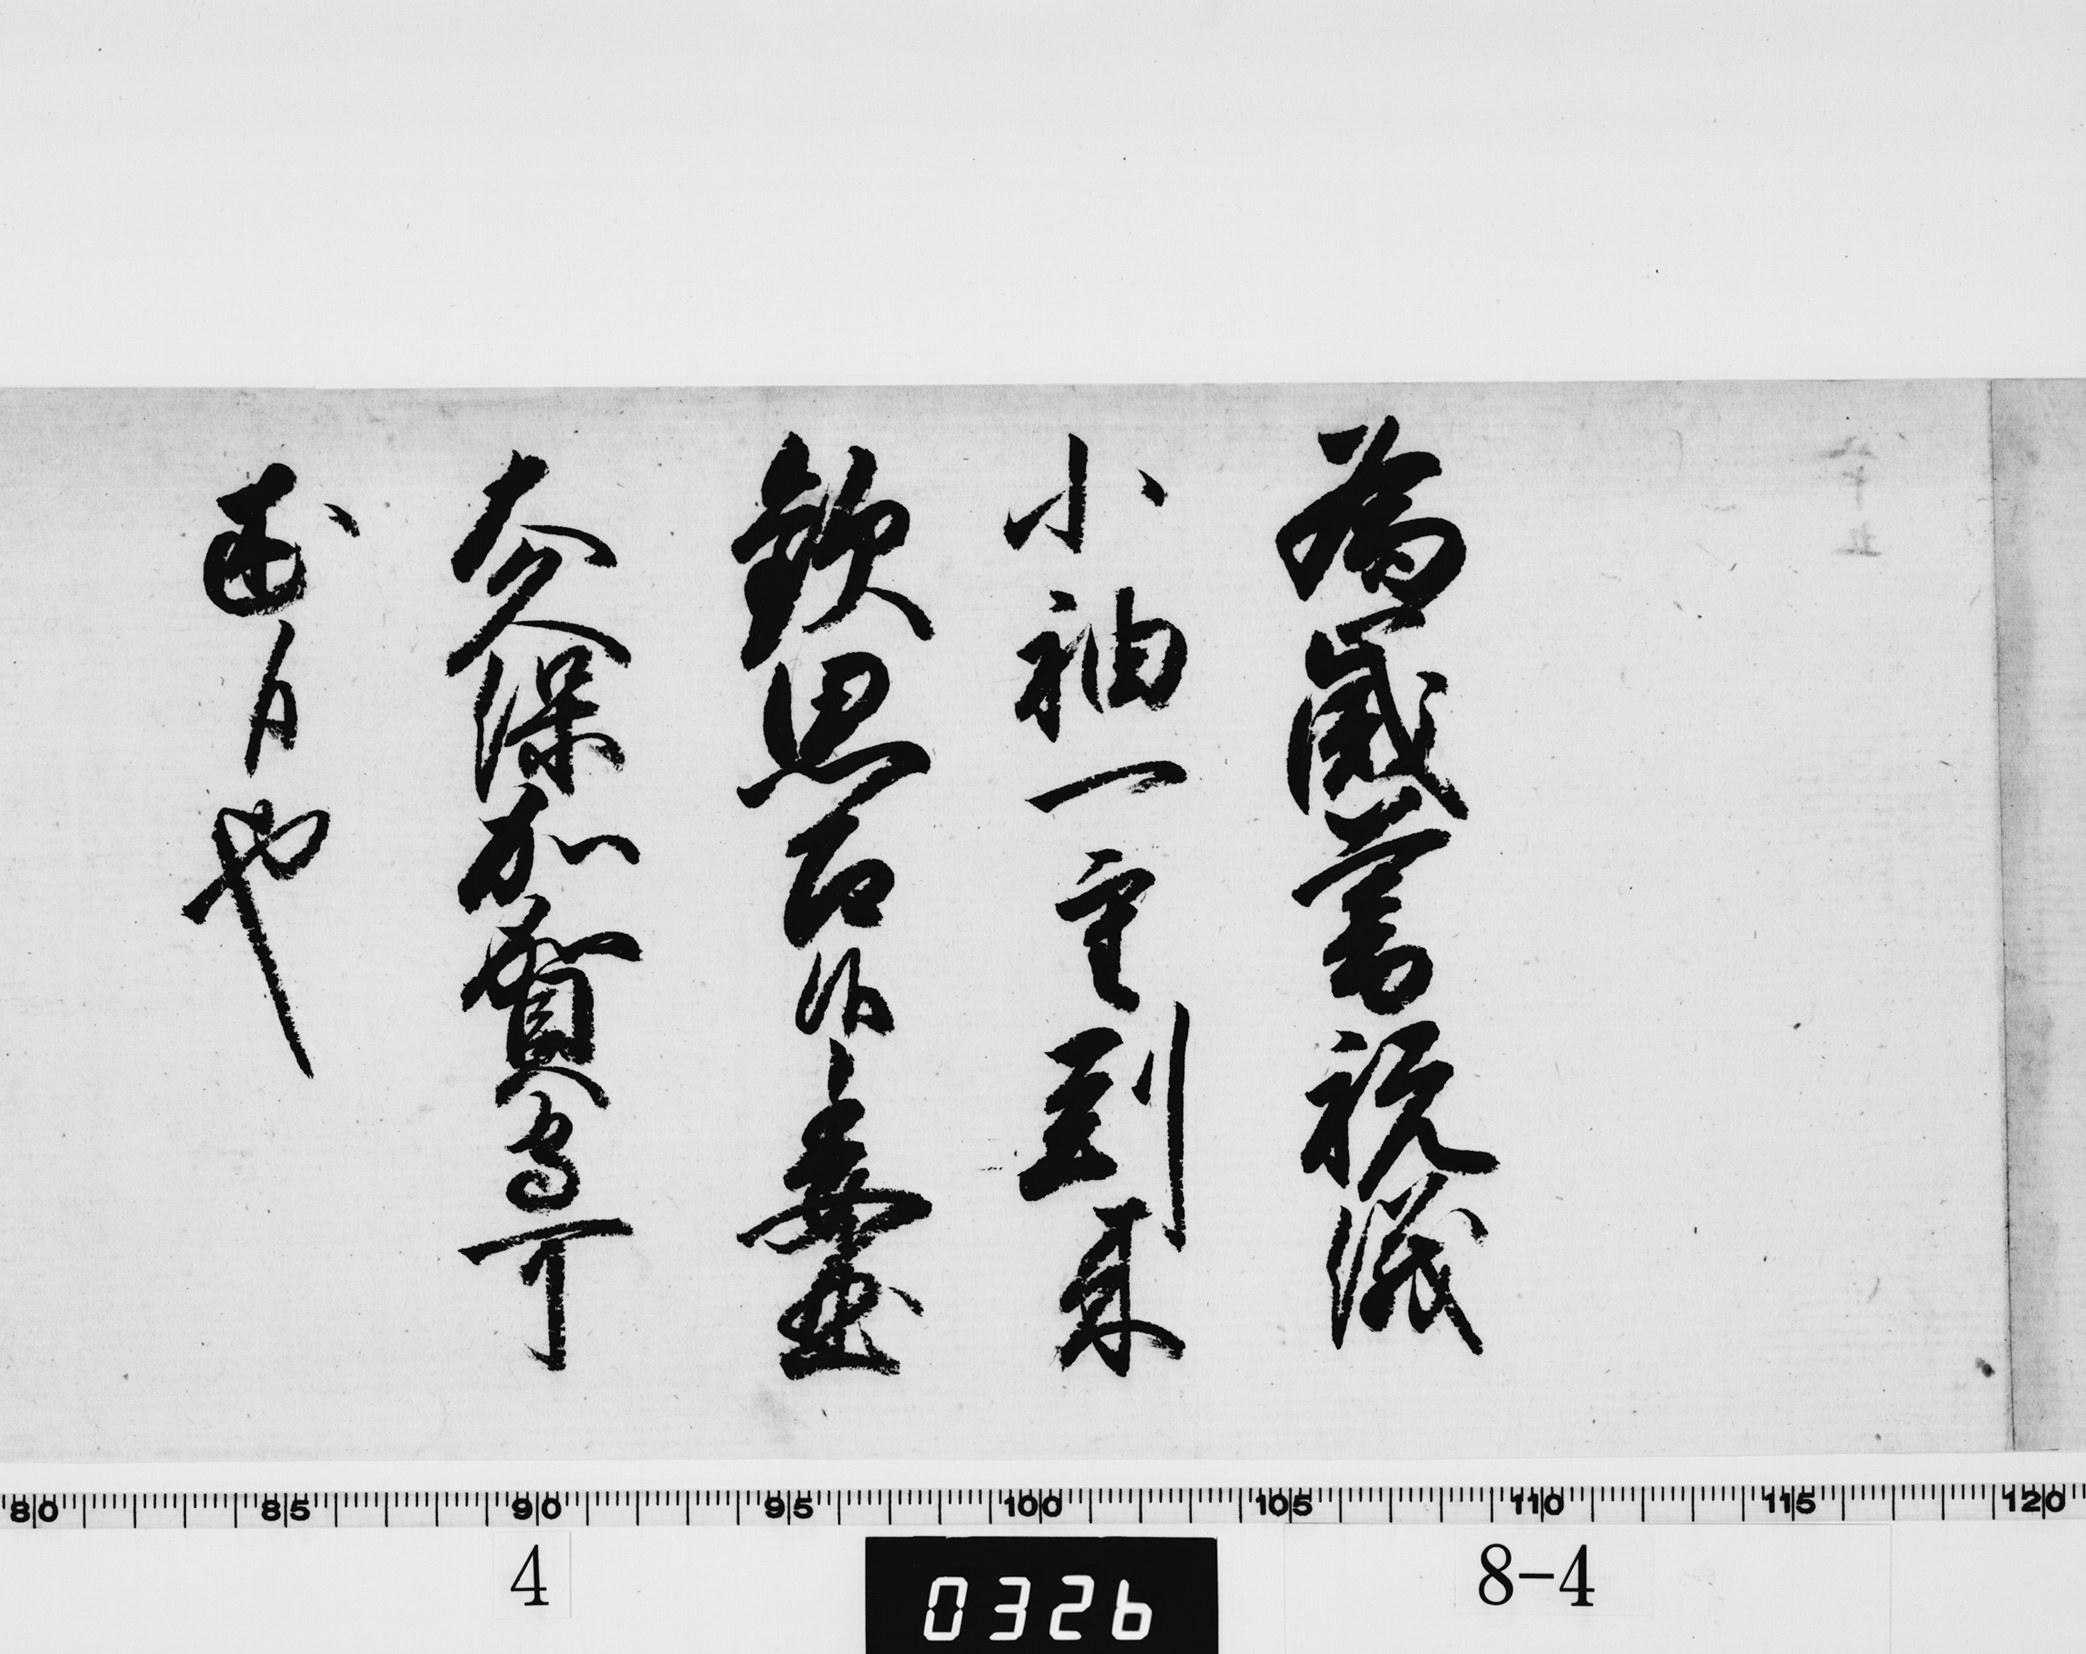 為歳暮祝儀
小袖一重到来
歓思召候委曲
大久保加賀守可
述候也
80 85 90 95 100 105 110 115 120
4
0326
8-4